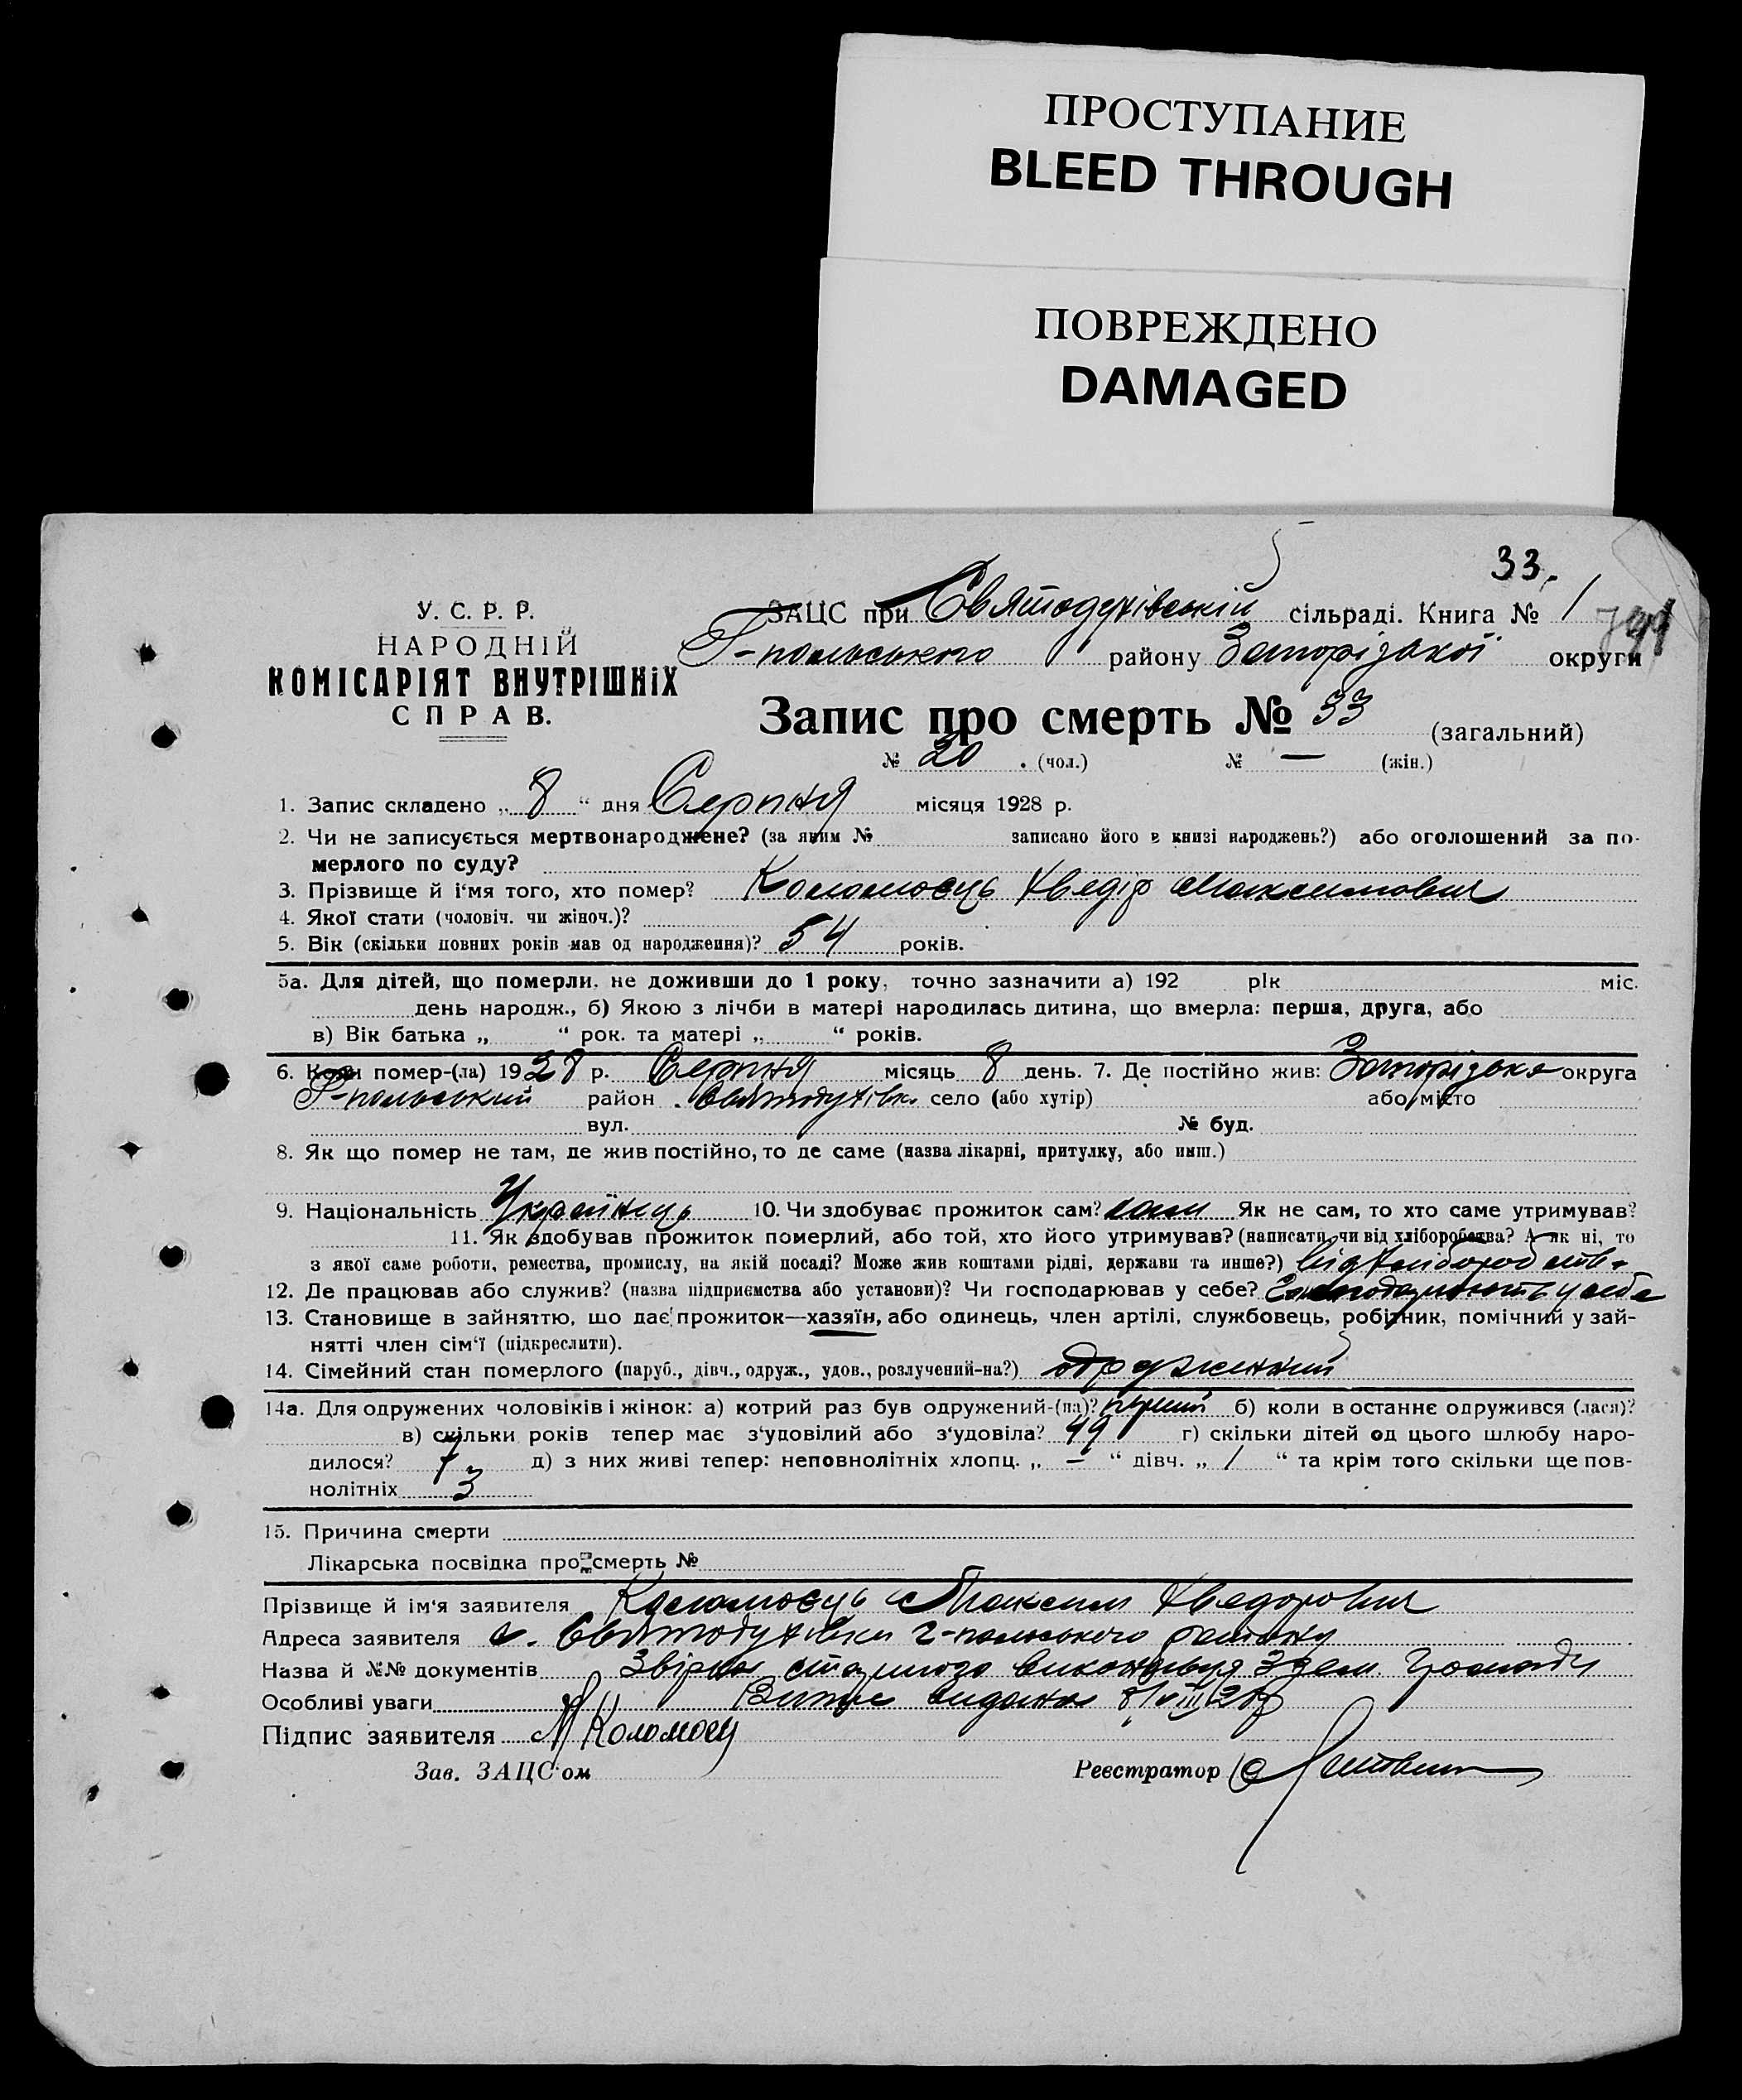 ПРОСТУПАНИЕ
BLEED THROUGH
ПОВРЕЖДЕНО
DAMAGED
33.
У. С. Р. Р.
НАРОДНІЙ
КОМІСАРІЯТ ВНУТРІШНІХ
СПРАВ.
ЗАЦС при Святодухівській сільраді. Книга № 1
Г-польського району Запорізької округи
Запис про смерть № 33 (загальний)
№ 20 . (чол.) № — (жін.)
1. Запис складено „ 8 “ дня Серпня місяця 1928 р.
2. Чи не записується мертвонароджене? (за яким № записано його в книзі народжень?) або оголошений за по-
мерлого по суду?
3. Прізвище й і‘мя того, хто помер? Коломоєць Хведір Максимович
4. Якої стати (чоловіч. чи жіноч.)?
5. Вік (скільки повних років мав од народження)? 54 років.
5а. Для дітей, що померли, не доживши до 1 року, точно зазначити а) 192 рік міс.
день народж., б) Якою з лічби в матері народилась дитина, що вмерла: перша, друга, або
в) Вік батька „ “ рок. та матері „ “ років.
6. Коли помер-(ла) 1928 р. Серпня місяць 8 день. 7. Де постійно жив: Запорізька округа
Г-польський район Святодухівка село (або хутір) або місто
вул. № буд.
8. Як що помер не там, де жив постійно, то де саме (назва лікарні, притулку, або инш.)
9. Національність Українець 10. Чи здобуває прожиток сам? сам Як не сам, то хто саме утримував?
11. Як здобував прожиток померлий, або той, хто його утримував? (написати, чи від хліборобства? А як ні, то
з якої саме роботи, ремества, промислу, на якій посаді? Може жив коштами рідні, держави та инше?) від хліборобства
12. Де працював або служив? (назва підприємства або установи)? Чи господарював у себе? у себе
13. Становище в заняттю, що дає прожиток—хазяїн, або одинець, член артілі, службовець, робітник, помічний у зай-
нятті член сім‘ї (підкреслити).
14. Сімейний стан померлого (паруб., дівч., одруж., удов., розлучений-на?) одружений
14а. Для одружених чоловіків і жінок: а) котрий раз був одружений-(на)? перший б) коли в останнє одружився (лася)?
в) скільки років тепер має з‘удовілий або з‘удовіла? 49 г) скільки дітей од цього шлюбу наро-
дилося? 7 д) з них живі тепер: неповнолітніх хлопц. „ – “ дівч. „ 1 “ та крім того скільки ще пов-
нолітніх 3
15. Причина смерти
Лікарська посвідка про смерть №
Прізвище й ім‘я заявителя Коломоєць Максим Хведорович
Адреса заявителя с. Святодухівки Г-польського району
Назва й №№ документів Звірка старшого виконавця Зем. Громади
Особливі уваги Витяг видано 8/VIII 28р
Підпис заявителя М Коломоец
Зав. ЗАЦС‘ом Реєстратор